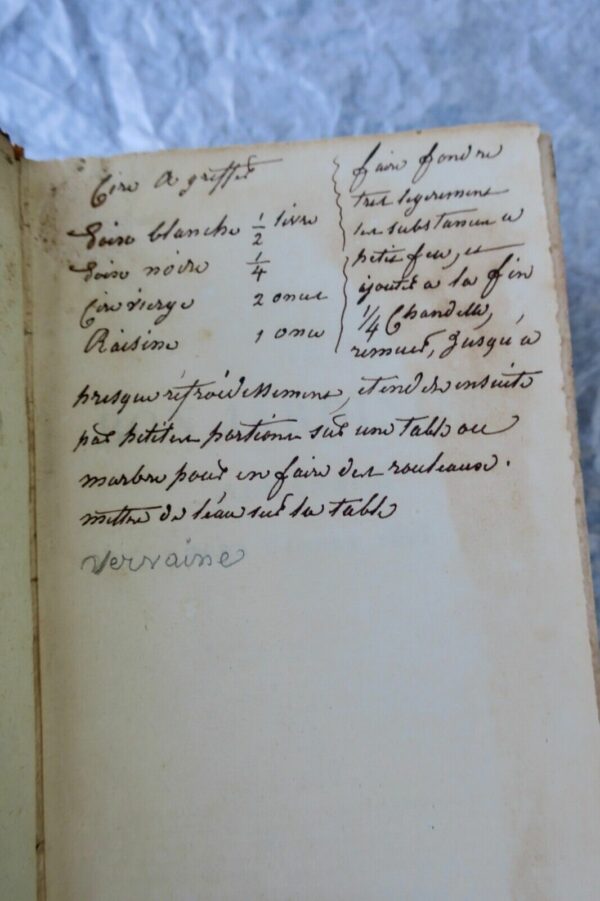 Cire A greffer
Poix blanche 1/2 livre
Poix noire 1/4
Cire vierge 2 onces
Raisine 1 once
faire fondre
tres legerement
les substances a
petit feu, et
ajouter a la fin
1/4 Chandelle,
remuer, Jusqu'a
presque réfroidissement, etendre ensuite
par petites portions sur une table ou
marbre pour en faire des rouleaux.
mettre de l'éau sur la table
Vervaine